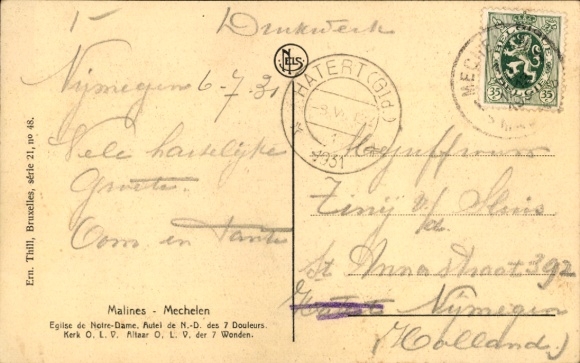 Drukwerk
Nijmegen 6-7-31
Vele hartelijke
Groeten
Oom en Tante
Malines - Mechelen
Eglise de Notre-Dame. Autel de N.-D. des 7 Douleurs.
Kerk O. L. V. Altaar O. L. V. der 7 Wonden.
Ern. Thill, Bruxelles, série 21, no 48.
NELS
HATERT (Gld.)
1931
MECH
BELGIQUE
BELGIË
35 35
Mejuffrouw
v/d Sluis
St Annastraat 392
Nijmegen
(Holland)